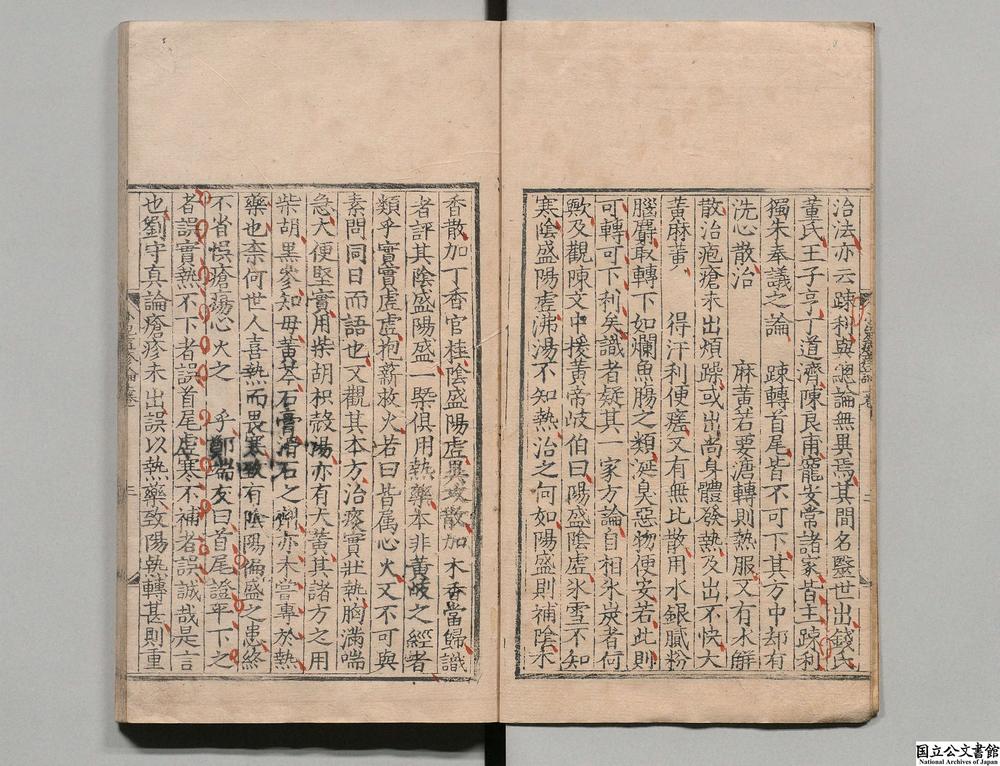 治法亦云疎利與總論無異焉其間名醫世出錢氏
董氏王子亨丁道濟陳良甫龐安常諸家皆主疎利
獨朱奉議之論　疎轉首尾皆不可下其方中却有
洗心散治　麻黃若要溏轉則熱服又有水解
散治疱瘡未出煩躁或出尚身體發熱及出不快大
黃麻黃　得汗利便瘥又有無比散用水銀膩粉
腦麝取轉下如爛魚腸之類涎臭惡物便安若此則
可轉可下利矣識者疑其一家方論自相氷炭者何
歟及觀陳文中援黃帝岐伯曰陽盛陰虛氷雪不知
寒陰盛陽虛沸湯不知熱治之何如陽盛則補陰木
香散加丁香官桂陰盛陽虛異攻散加木香當歸識
者評其陰盛陽盛一槩俱用熱藥本非黃岐之經者
類乎實實虛虛抱薪救火若曰皆爲心火又不可與
素問同日而語也又觀其本方治痰實壯熱胸滿喘
急大便堅實用柴胡枳殼湯亦有大黃其諸方之用
柴胡黑參知母黃芩石膏滑石之劑亦未嘗專於熱
藥也柰何世人喜熱而畏寒致有陰陽偏盛之患終
不省悞瘡瘍心火之　乎鄭端友曰首尾證平下之
者誤實熱不下者誤首尾虛寒不補者誤誠哉是言
也劉守真論瘡疹未出誤以熱藥致陽熱轉甚則重
国立公文書館
National Archives of Japan